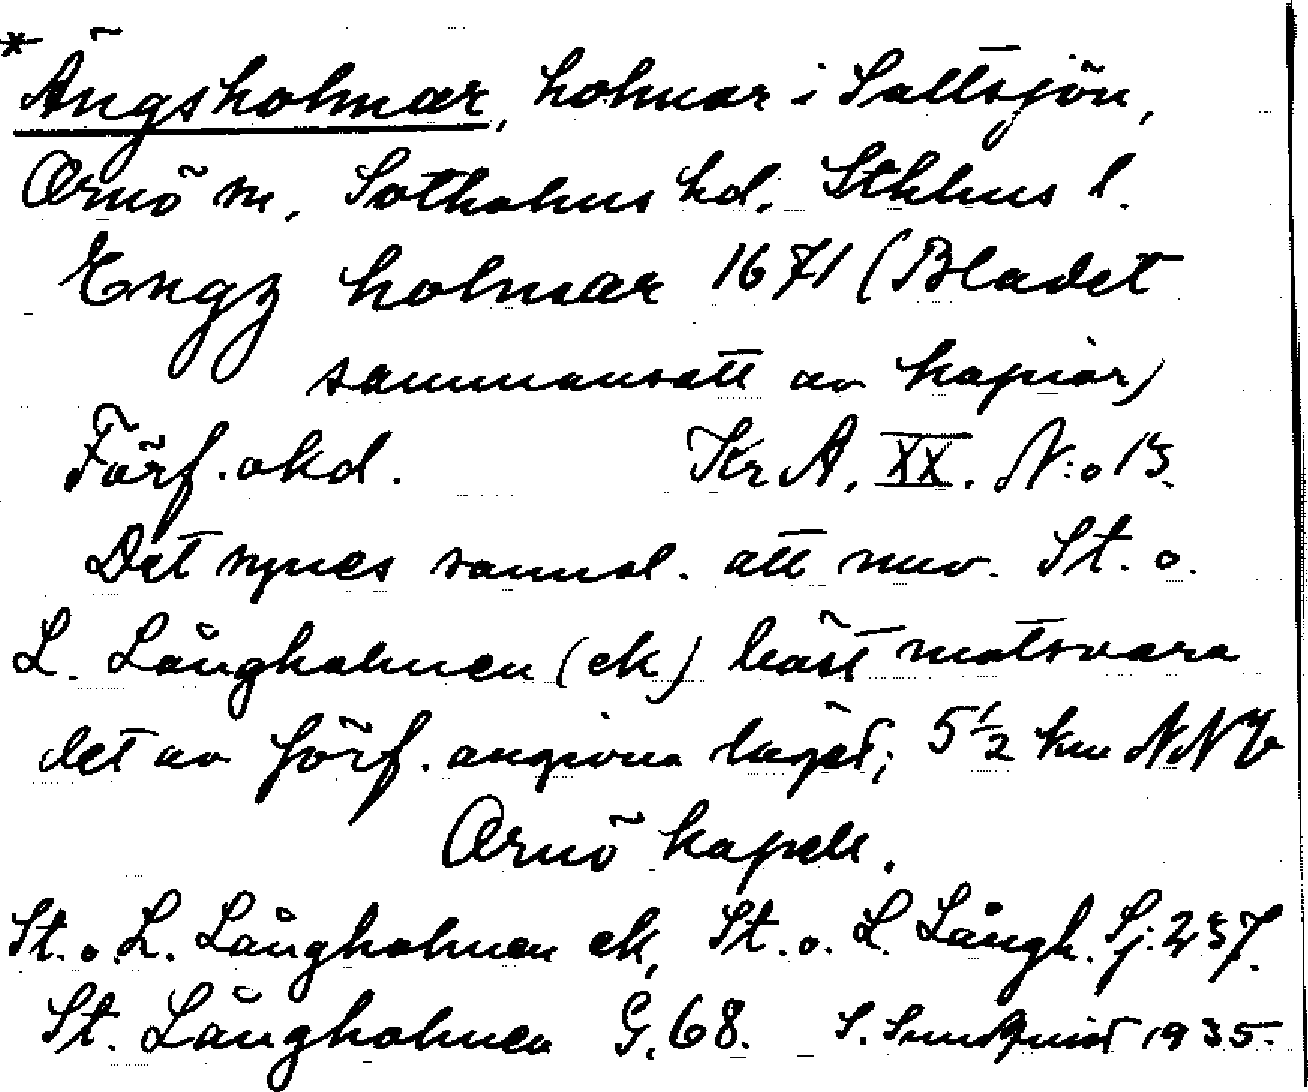 * Ängsholmar, holmar i Saltsjön,
Ornö sn, Sotholms hd. Sthlms l.
Engz holmar 1671 (Bladet
sammansatt av kopior)
Förf. okd. Kr A. XX. N:o 13.
Det synes sannol. att nuv. St. o.
L. Långholmen (ek) bäst motsvara
det av förf. angivna läget; 5½ km NNV
Ornö kapell.
St. o. L. Långholmen ek, St. o. L. Långh. Sj. 237.
St. Långholmen G. 68. S. Sundquist 1935.